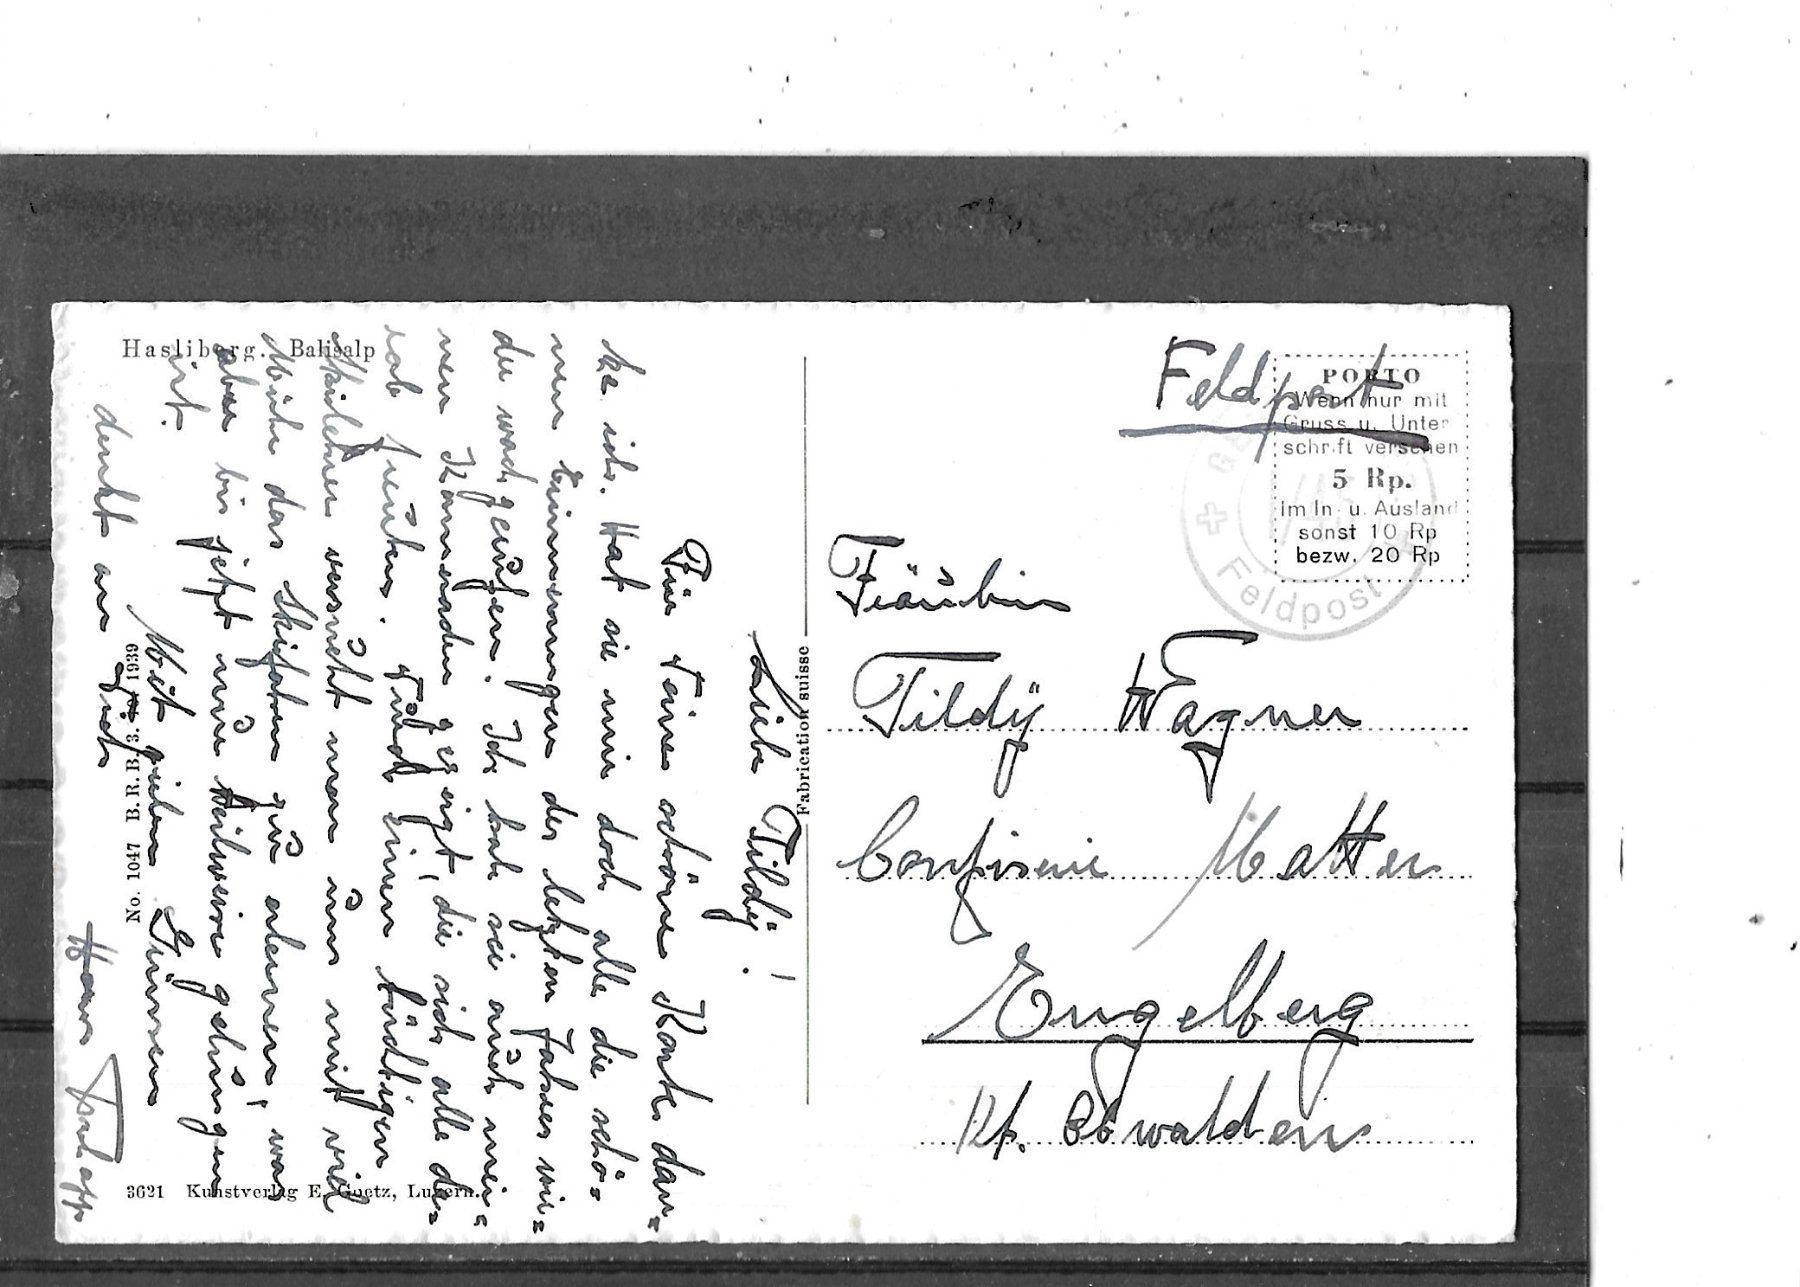 Hasliberg. Balisalp
Liebe Tildÿ!
Für Deine schöne Karte dan=
ke ich. Hat sie mir doch alle die schö=
nen Erinnerungen des letzten Jahres wie=
der wachgerufen. Ich hab sie auch mei=
nen Kameraden gezeigt, die sich alle da=
rob freuten. Und einen tüchtigen
Skilehrer versucht man uns mit viel
Mühe das Skifahren zu lernen, was
aber bis jetzt nur teilweise gelungen
ist.
Mit vielen Grüssen
denkt an Dich
Hans
No. 1047 B. R. B. 3. 1939
3621 Kunstverlag E. Goetz, Luzern.
Fabrication suisse
Feldpost
PORTO
Wenn nur mit
Gruss u. Unter
schrift versehen
5 Rp.
Im In- u. Ausland
sonst 10 Rp
bezw. 20 Rp
Feldpost
Fräulein
Tildÿ Wagner
Confiserie Matter
Engelberg
Kt. Obwalden